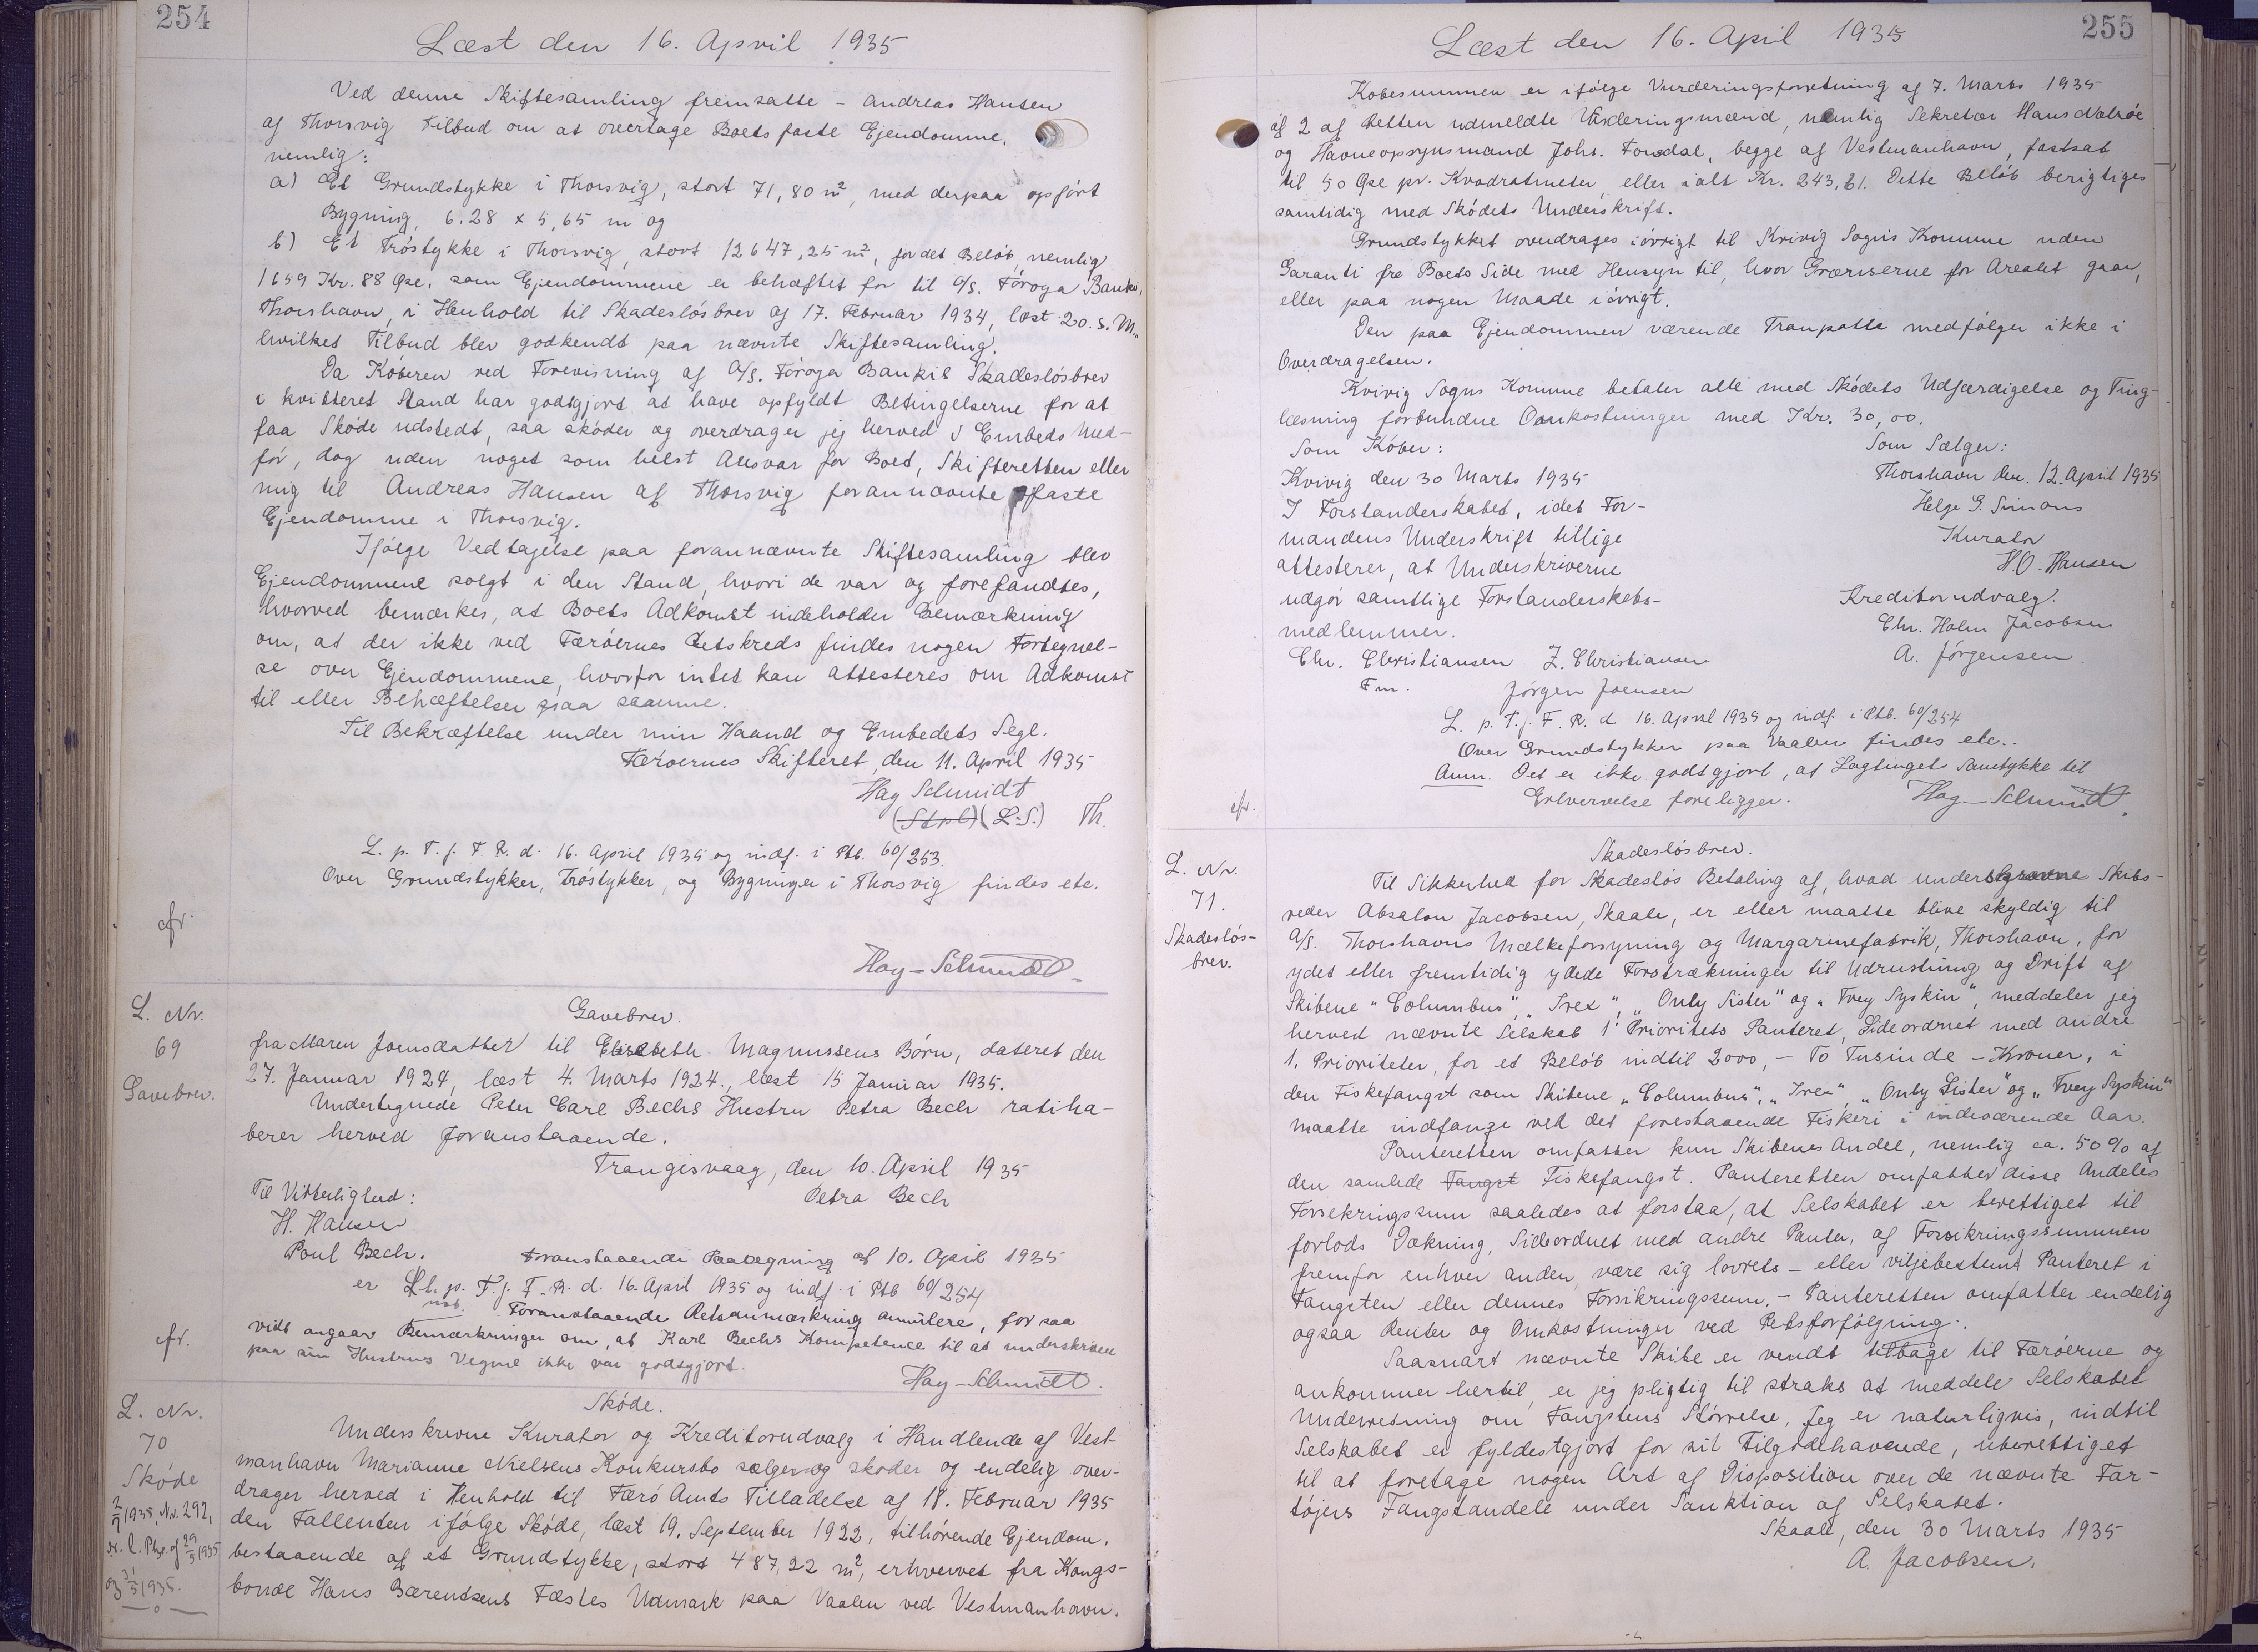 254
Læst den 16. April 1935
Ved denne Skiftesamling fremsatte - Andreas Hansen
af Thorsvig Tilbud om at overtage Boets faste Ejendomme,
nemlig:
a) Et Grundstykke i Thorsvig, stort 71,80 m², med derpaa opført
Bygning, 6.28 x 5,65 m og
b) Et Trøstykke i Thorsvig, stort 12647,25 m², for det Beløb, nemlig
1659 Kr. 88 Øre, som Ejendommene er behæftet for til A/S. Føroya Banki,
Thorshavn, i Henhold til Skadesløsbrev af 17. Februar 1934, læst 20. s. M.,
hvilket Tilbud blev godkendt paa nævnte Skiftesamling.
Da Køberen ved Forevisning af A/S. Føroya Bankis Skadesløsbrev
i kvitteret Stand har godtgjort at have opfyldt Betingelserne for at
faa Skøde udstedt, saa skøder og overdrager jeg herved i Embeds Med-
før, dog uden noget som helst Ansvar for Boet, Skifteretten eller
mig til Andreas Hansen af Thorsvig forannævnte faste
Ejendomme i Thorsvig.
Ifølge Vedtagelse paa forannævnte Skiftesamling blev
Ejendommene solgt i den Stand, hvori de var og forefandtes,
hvorved bemærkes, at Boets Adkomst indeholder Bemærkning
om, at der ikke ved Færøernes Retskreds findes nogen Fortegnel-
se over Ejendommene, hvorfor intet kan attesteres om Adkomst
til eller Behæftelser paa samme.
Til Bekræftelse under min Haand og Embedets Segl.
Færøernes Skifteret, den 11. April 1935
Hay Schmidt
(Stpl) (L.S.) Th.
L. p. T. f. F. R. d. 16. April 1935 og indf. i Ptb. 60/253.
Over Grundstykker, Trøstykker, og Bygninger i Thorsvig findes etc.
cfr.
Hay-Schmidt
L. Nr.
69
Gavebrev.
Gavebrev.
fra Maren Joensdatter til Elisabeth Magnussens Børn, dateret den
27. Januar 1924, læst 4. Marts 1924., læst 15 Januar 1935.
Undertegnede Peter Carl Bechs Hustru Petra Bech ratiha-
berer herved foranstaaende.
Trangisvaag, den 10. April 1935
Til Vitterlighed: Petra Bech
H. Hansen
Poul Bech. Foranstaaende Paategning af 10. April 1935
er L. p. T. f. F. R. d. 16. April 1935 og indf. i Ptb 60/254
Foranstaaende Retsanmærkning annullere, for saa
vidt angaar Bemærkninger om, at Karl Bechs Kompetence til at underskrive
paa sin Hustrus Vegne ikke var godtgjort.
cfr.
Hay-Schmidt.
L. Nr.
70
Skøde
1935, Nr. 292,
1935
1935.
Skøde.
Underskrevne Kurator og Kreditorudvalg i Handlende af Vest-
manhavn Marianne Nielsens Konkursbo sælger og skøder og endelig over-
drager herved i Henhold til Færø Amts Tilladelse af 18. Februar 1935
den Fallenten ifølge Skøde, læst 19. September 1922, tilhørende Ejendom,
bestaaende af et Grundstykke, stort 487,22 m², erhvervet fra Kongs-
bonde Hans Bærendsens Fæstes Udmark paa Vaalen ved Vestmanhavn.
255
Læst den 16. April 1935
Købesummen er ifølge Vurderingsforretning af 7. Marts 1935
af 2 af Retten udmeldte Vurderingsmænd, nemlig Sekretær Hans
og Havneopsynsmand Johs. Forsdal, begge af Vestmanhavn, fastsat
til 50 Øre pr. Kvadratmeter, eller ialt Kr. 243,61. Dette Beløb berigtiges
samtidig med Skødets Underskrift.
Grundstykket overdrages iøvrigt til Kvivig Sogns Kommune uden
Garanti fra Boets Side med Hensyn til, hvor Grænserne for Arealet gaar,
eller paa nogen Maade iøvrigt.
Den paa Ejendommen værende Tranpotte medfølger ikke i
Overdragelsen.
Kvivig Sogns Komune betaler alle med Skødets Udfærdigelse og Ting-
læsning forbundne Omkostninger med Kr. 30,00.
Som Køber: Som Sælger:
Kvivig den 30 Marts 1935 Thorshavn den. 12. April 1935
I Forstanderskabet, idet For- Helge G. Simons
mandens Underskrift tillige Kurator
attesterer, at Underskriverne H.O. Hansen
udgør samtlige Forstanderskabs- Kreditorudvalg.
medlemmer. Chr. Holm Jacobsen
Chr. Christiansen Z. Christiansen A. Jørgensen.
Fm. Jørgen Joensen
L. p. T. f. F. R. d 16. April 1935 og indf. i Ptb. 60/254
Over Grundstykker paa Vaalen findes etc..
Anm. Det er ikke godtgjort, at Lagtingets Samtykke til
Erhvervelse foreligger. Hay-Schmidt.
cfr.
L. Nr.
71.
Skadesløs-
brev.
Skadesløsbrev.
Til Sikkerhed for Skadesløs Betaling af, hvad underskrevne Skibs-
reder Absalon Jacobsen, Skaale, er eller maatte blive skyldig til
A/S. Thorshavns Mælkeforsyning og Margarinefabrik, Thorshavn, for
ydet eller fremtidig ydede Forstrækninger til Udrustning og Drift af
Skibene "Columbus", "Irex", "Only Sister" og "Tvey Syskin", meddeler jeg
herved nævnte Selskab 1' Prioritets Panteret, Sideordnet med andre
1. Prioriteter, for et Beløb indtil 2000,- To Tusinde - Kroner, i
den Fiskefangst som Skibene "Columbus", "Irex", "Only Sister" og "Tvey Syskin"
maatte indfange ved det forestaaende Fiskeri i indeværende Aar.
Panteretten omfatter kun Skibenes Andel, nemlig ca. 50% af
den samlede Fangst Fiskefangst. Panteretten omfatter disse Andeles
Forsikringssum saaledes at forstaa, at Selskabet er berettiget til
forlods Dækning, Sideordnet med andre Panter, af Forsikringssummen
fremfor enhver anden, være sig lovrets- eller viljebestemt Panteret i
Fangsten eller dennes Forsikringssum. - Panteretten omfatter endelig
ogsaa Renter og Omkostninger ved Retsforfølgning.
Saasnart nævnte Skibe er vendt tilbage til Færøerne og
ankommer hertil, er jeg pligtig til straks at meddele Selskabet
Underretning om Fangstens Størrelse, Jeg er naturligvis, indtil
Selskabet er fyldestgjort for sit Tilgodehavende, uberettiget
til at foretage nogen Art af Disposition over de nævnte Far-
tøjers Fangstandele under Sanktion af Selskabet.
Skaale, den 30 Marts 1935
A. Jacobsen.